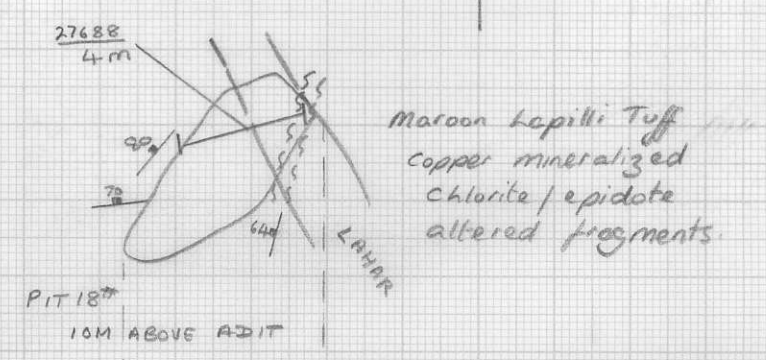 27688
4m
Maroon Lapilli Tuff
Copper mineralized
Chlorite/epidote
altered fragments.
70
64
LAHAR
PIT 18#
10M ABOVE ADIT